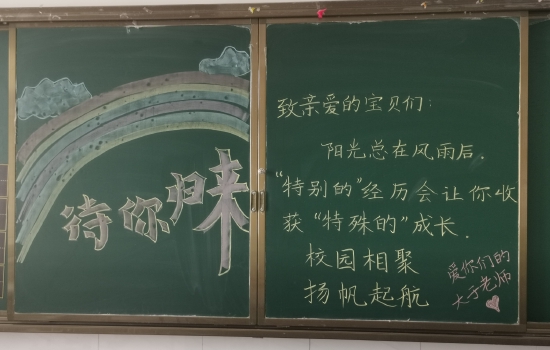 待你归来
致亲爱的宝贝们：
阳光总在风雨后．
“特别的”经历会让你收
获“特殊的”成长．
校园相聚
扬帆起航
爱你们的
大于老师